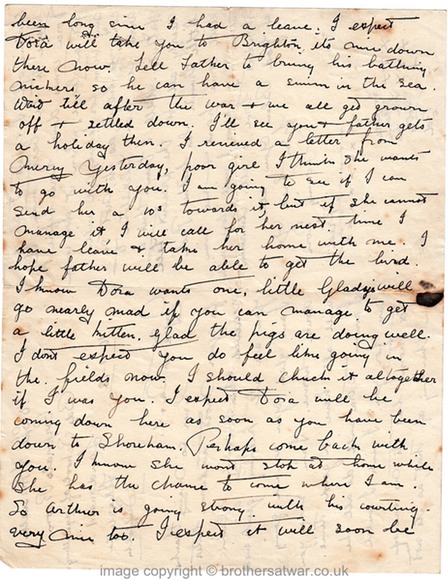 been long since I had a leave. I expect
Dora will take you to Brighton, its nice down
there now. Tell Father to bring his bathing
nickers, so he can have a swim in the sea.
Wait till after the war & we all get grown
off & settled down. I'll see you & father gets
a holiday then. I recieved a letter from
Mercy Yesterday, poor girl I think she wants
to go with you. I am going to see if I can
send her a 10s towards it, but if she cannot
manage it I will call for her next time I
have leave & take her home with me. I
hope father will be able to get the bird.
I know Dora wants one, little Gladys will
go nearly mad if you can manage to get
a little kitten. Glad the pigs are doing well.
I dont expect you do feel like going in
the fields now. I should chuck it altogether
if I was you. I expect Dora will be
coming down here as soon as you have been
down to Shoreham. Perhaps come back with
you. I know she wont stop at home while
she has the chance to come where I am.
So Arthur is going strong with his courting.
very nice too. I expect it will soon be
image copyright © brothersatwar.co.uk